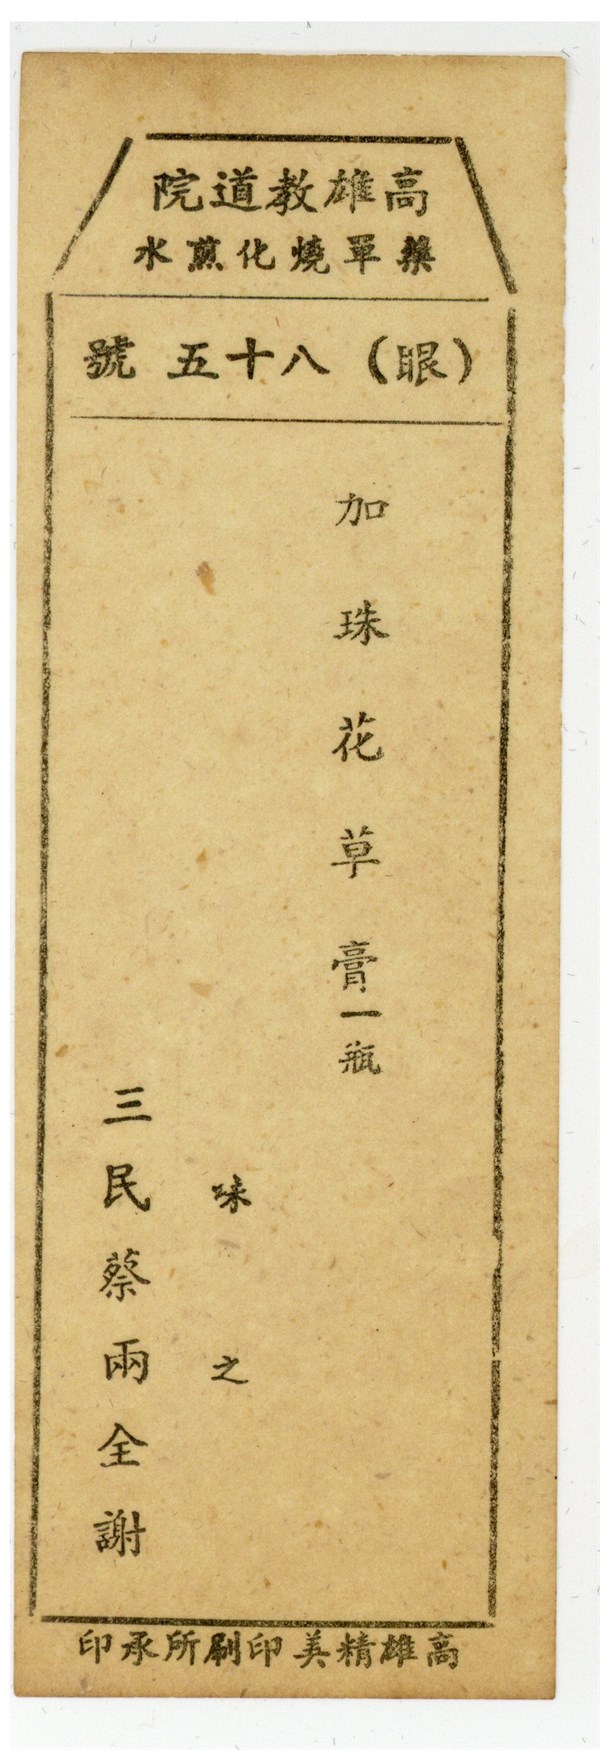 高雄教道院
藥單燒化煎水
（眼）八十五號
加珠花草膏一瓶
味之
三民蔡兩全謝
高雄精美印刷所承印